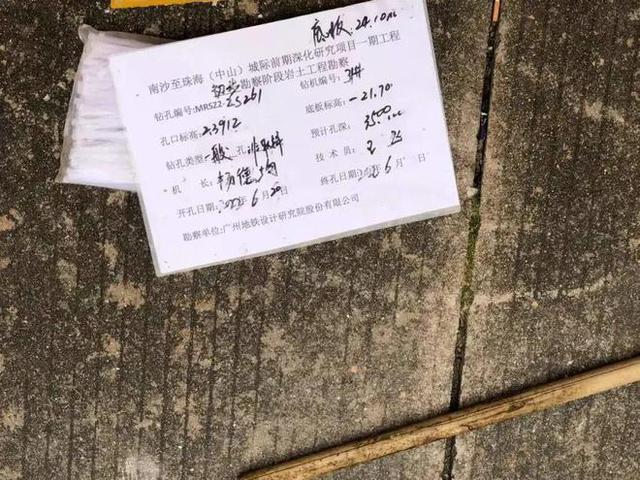 底板:24.10m
南沙至珠海（中山）城际前期深化研究项目一期工程
初步勘察阶段岩土工程勘察
钻孔编号:MRSZ2-ZS261 钻机编号: 3#
孔口标高: 2.3912 底板标高: -21.70
钻孔类型: 一般孔 预计孔深: 35.00m
机 长: 杨德 技术员: 王
开孔日期: 2022年6月20日 终孔日期: 2022年6月 日
勘察单位:广州地铁设计研究院股份有限公司